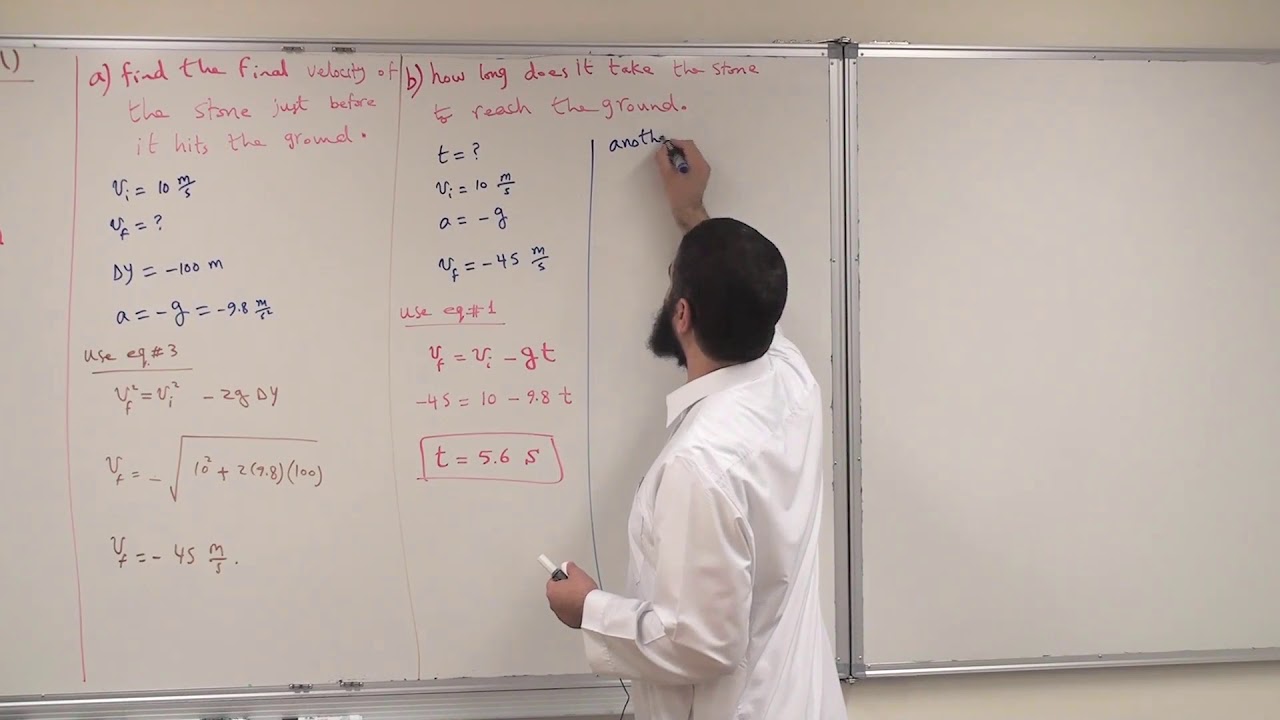 a) find the final velocity of
the stone just before
it hits the ground.
Vi = 10 m/s
Vf = ?
Δy = -100 m
a = -g = -9.8 m/s²
use eq.# 3
Vf² = Vi² - 2g Δy
Vf = - √(10² + 2(9.8)(100))
Vf = - 45 m/s.
b) how long does it take the stone
to reach the ground.
t = ?
Vi = 10 m/s
a = -g
Vf = -45 m/s
use eq.# 1
Vf = Vi - gt
-45 = 10 - 9.8 t
t = 5.6 s
anothe